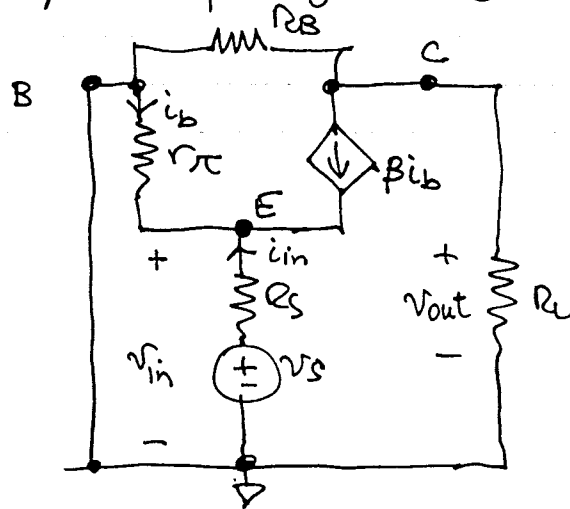 RB
C
B
ib
rπ
βib
E
+
iin
+
RS
vout
RL
vin
+
-
vs
-
-